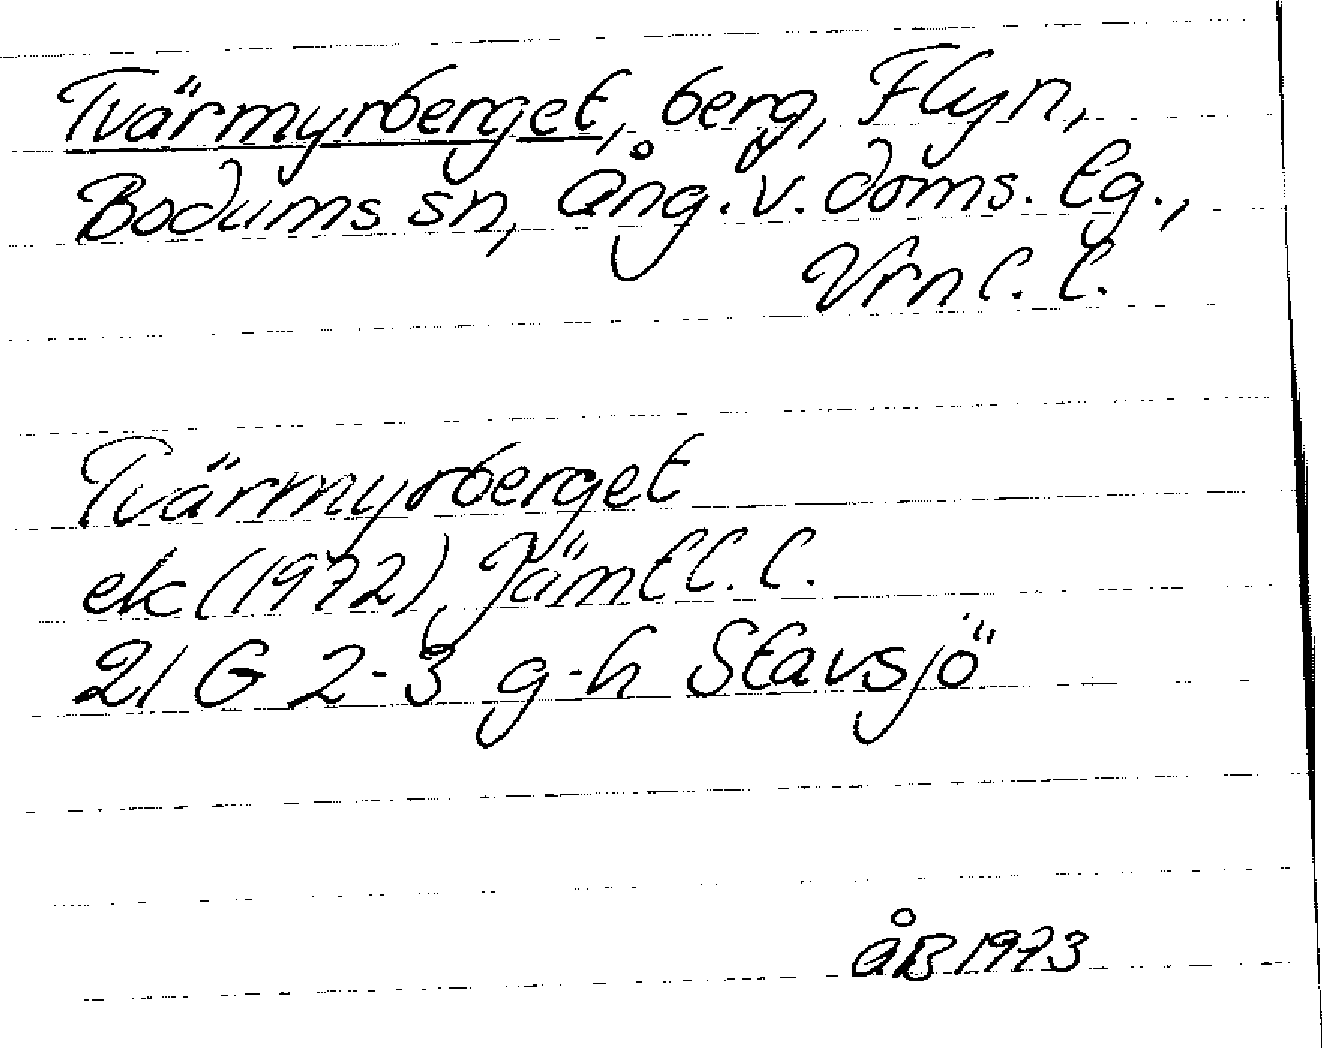 Tvärmyrberget, berg, Flyn,
Bodums sn, Ång. v. doms. tg.,
Vrnl. l.
Tvärmyrberget
ek (1972), Jämtl. l.
21 G 2-3 g-h Stavsjö
åB 1973